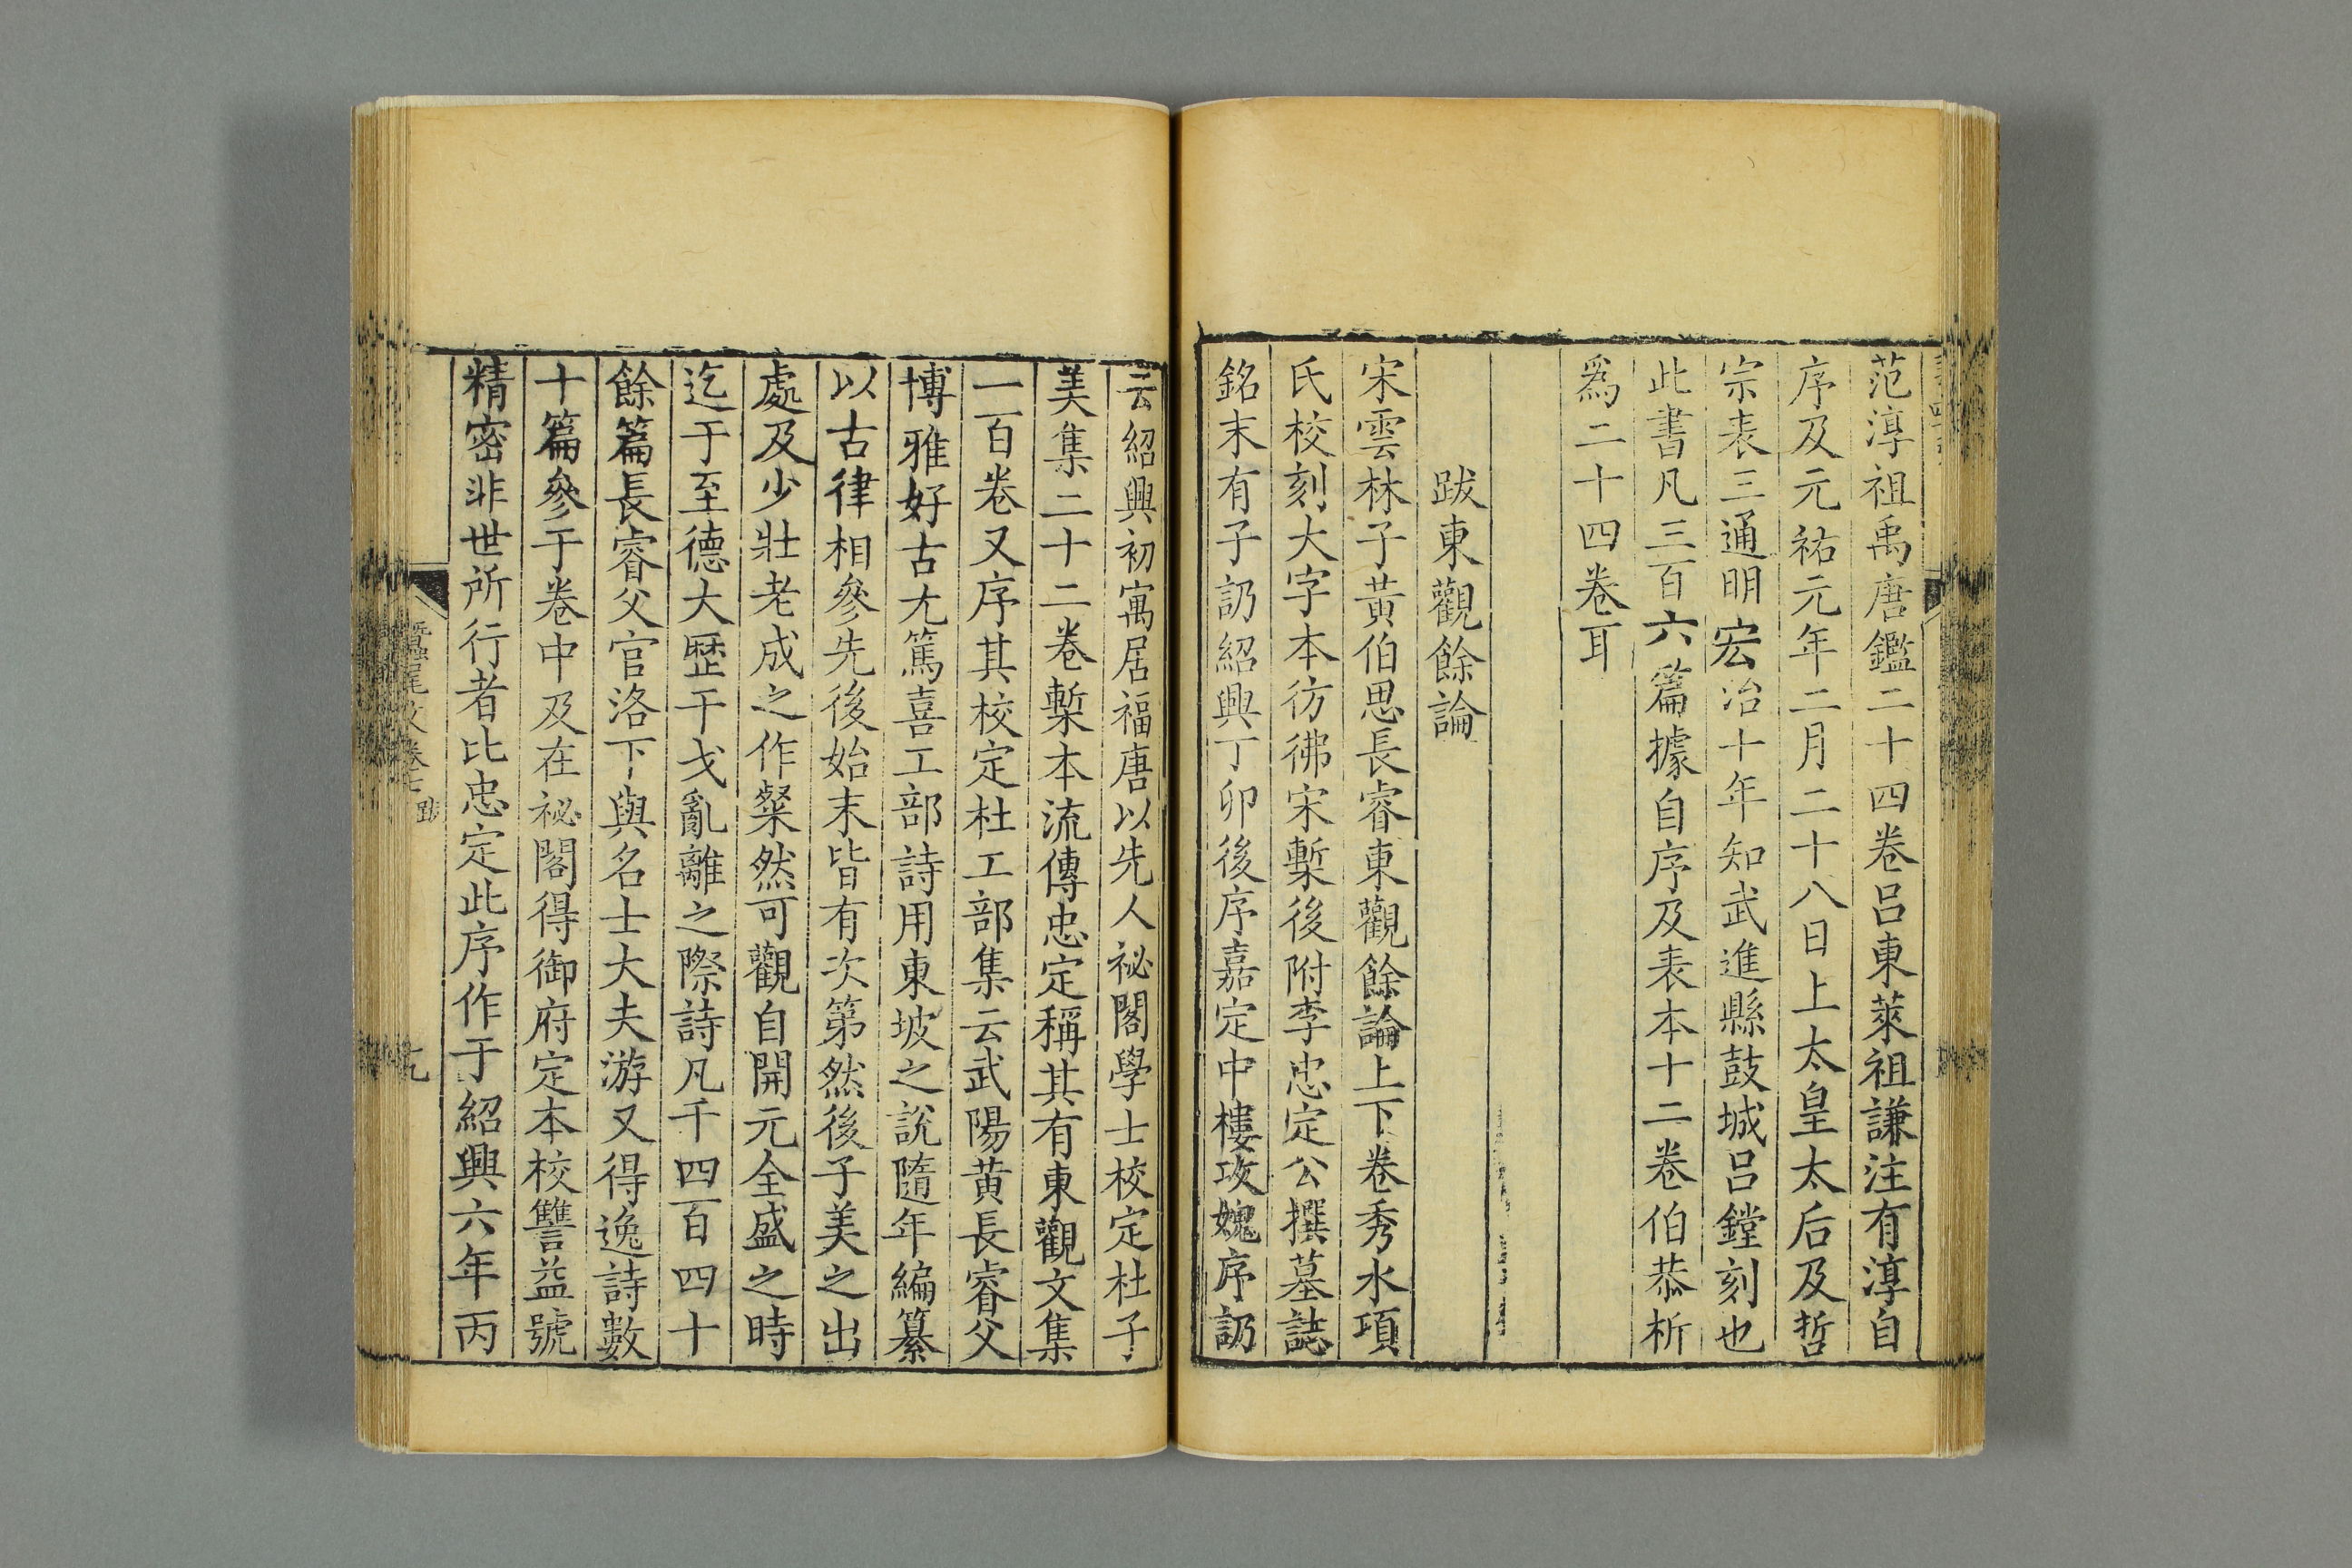 范淳祖禹唐鑑二十四卷呂東萊祖謙注有淳自
序及元祐元年二月二十八日上太皇太后及哲
宗表三通明宏治十年知武進縣鼓城呂鏜刻也
此書凡三百六篇據自序及表本十二卷伯恭析
爲二十四卷耳
跋東觀餘論
宋雲林子黃伯思長睿東觀餘論上下卷秀水項
氏校刻大字本彷彿宋槧後附李忠定公撰墓誌
銘末有子訒紹興丁卯後序嘉定中樓攻媿序訒
云紹興初寓居福唐以先人祕閣學士校定杜子
美集二十二卷槧本流傳忠定稱其有東觀文集
一百卷又序其校定杜工部集云武陽黃長睿父
博雅好古尤篤喜工部詩用東坡之說隨年編纂
以古律相參先後始末皆有次第然後子美之出
處及少壯老成之作粲然可觀自開元全盛之時
迄于至德大歷干戈亂離之際詩凡千四百四十
餘篇長睿父官洛下與名士大夫游又得逸詩數
十篇參于卷中及在祕閣得御府定本校讐益號
精密非世所行者比忠定此序作于紹興六年丙